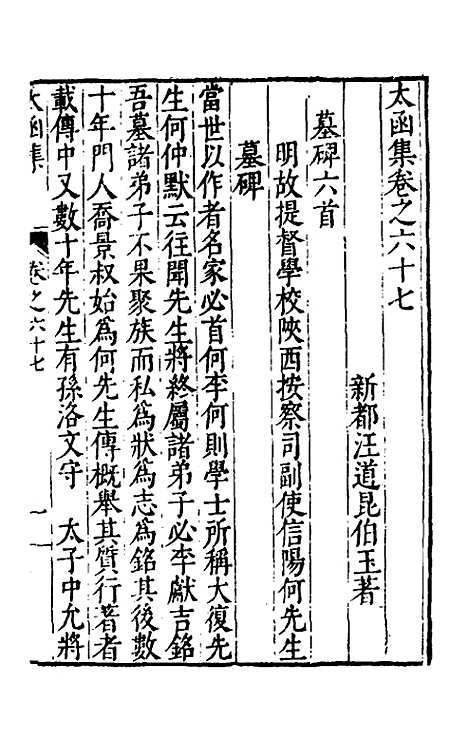 太函集卷之六十七
新都汪道昆伯玉著
墓碑六首
明故提督學校陜西按察司副使信陽何先生
墓碑
當世以作者名家必首何李何則學士所稱大復先
生何仲默云往聞先生將終屬諸弟子必李獻吉銘
吾墓諸弟子不果聚族而私為狀為志為銘其後數
十年門人喬景叔始為何先生傳概舉其質行著者
載傳中又數十年先生有孫洛文守 太子中允將
太函集 卷之六十七 一